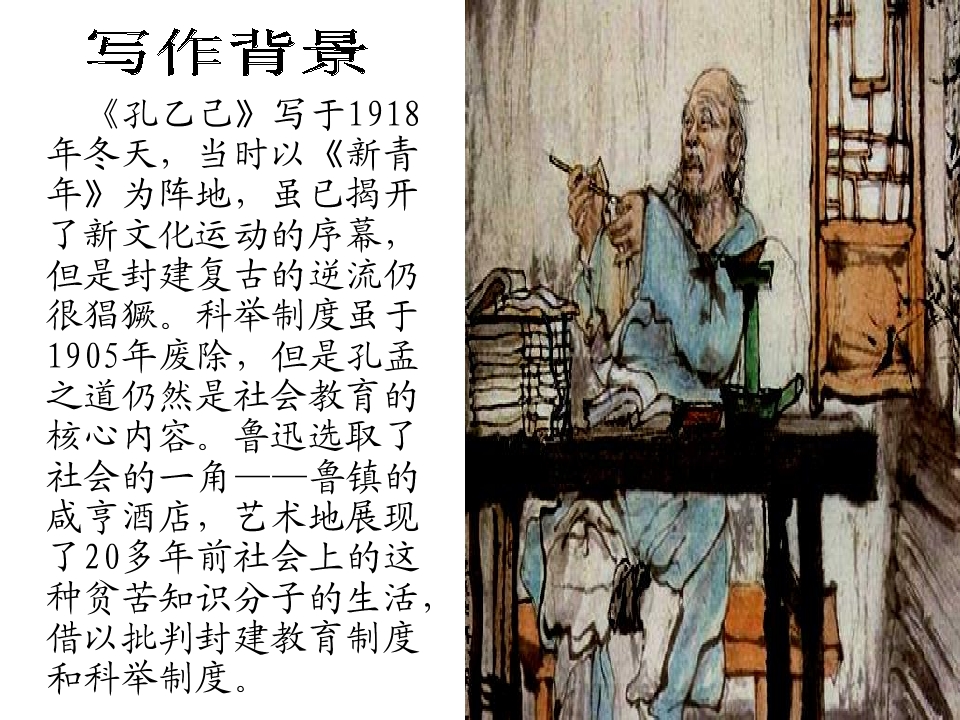 写作背景
《孔乙己》写于1918
年冬天，当时以《新青
年》为阵地，虽已揭开
了新文化运动的序幕，
但是封建复古的逆流仍
很猖獗。科举制度虽于
1905年废除，但是孔孟
之道仍然是社会教育的
核心内容。鲁迅选取了
社会的一角——鲁镇的
咸亨酒店，艺术地展现
了20多年前社会上的这
种贫苦知识分子的生活，
借以批判封建教育制度
和科举制度。